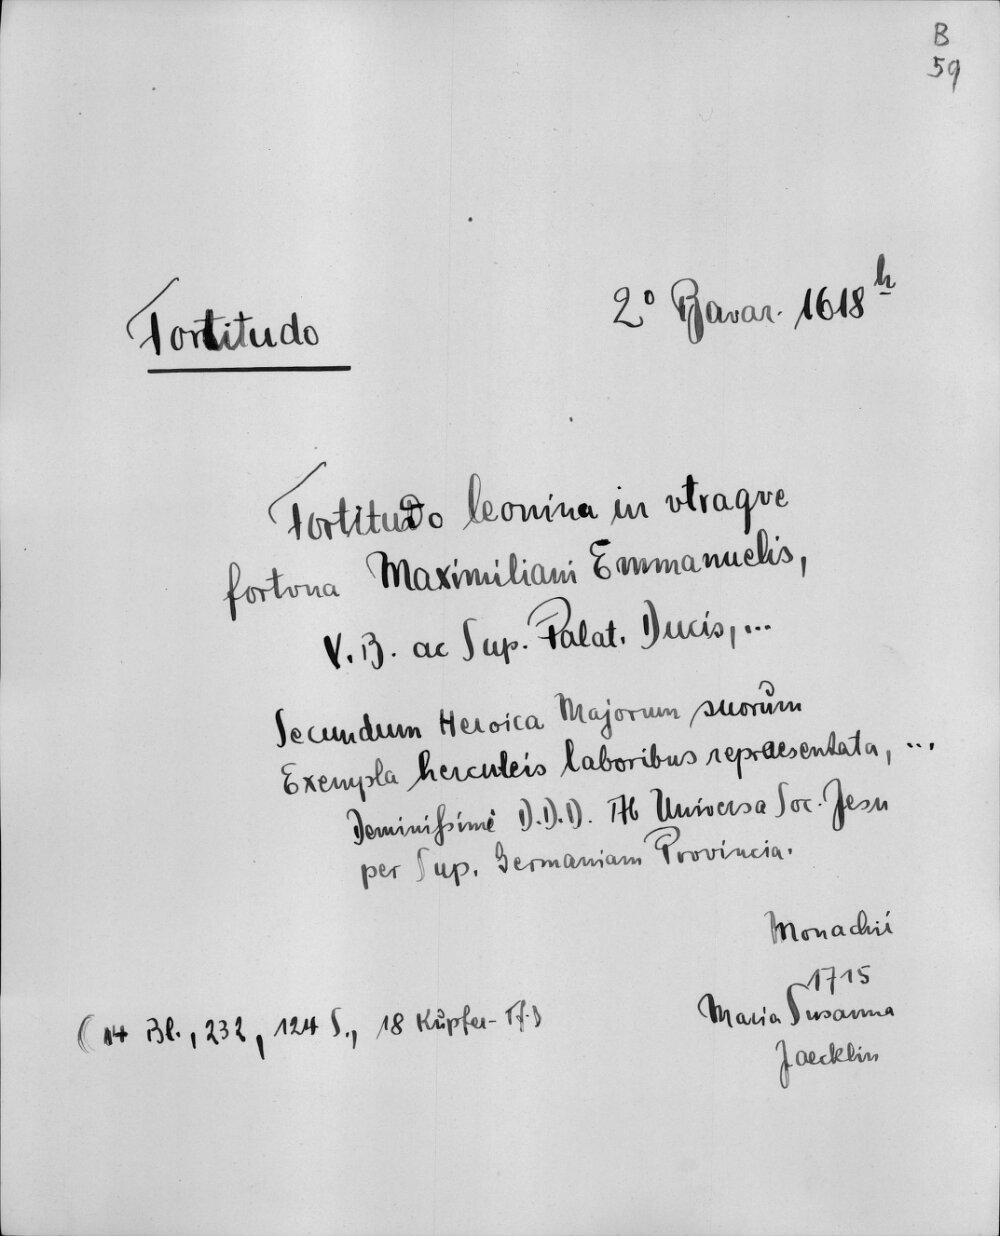 B
59
Fortitudo
2° Bavar. 1618 h
Fortitudo leonina in vtraqve
fortvna Maximiliani Emmanuelis,
V. B. ac Sup. Palat. Ducis, ...
Secundum Heroica Majorum suorum
Exempla herculeis laboribus repraesentata, ...
D.D.D. Ab Universa Soc. Jesu
per Sup. Germaniam Provincia.
Monachii
1715
Maria Susanna
Jaecklin
(14 Bl., 232, 124 S., 18 Kupfer-Tf.)